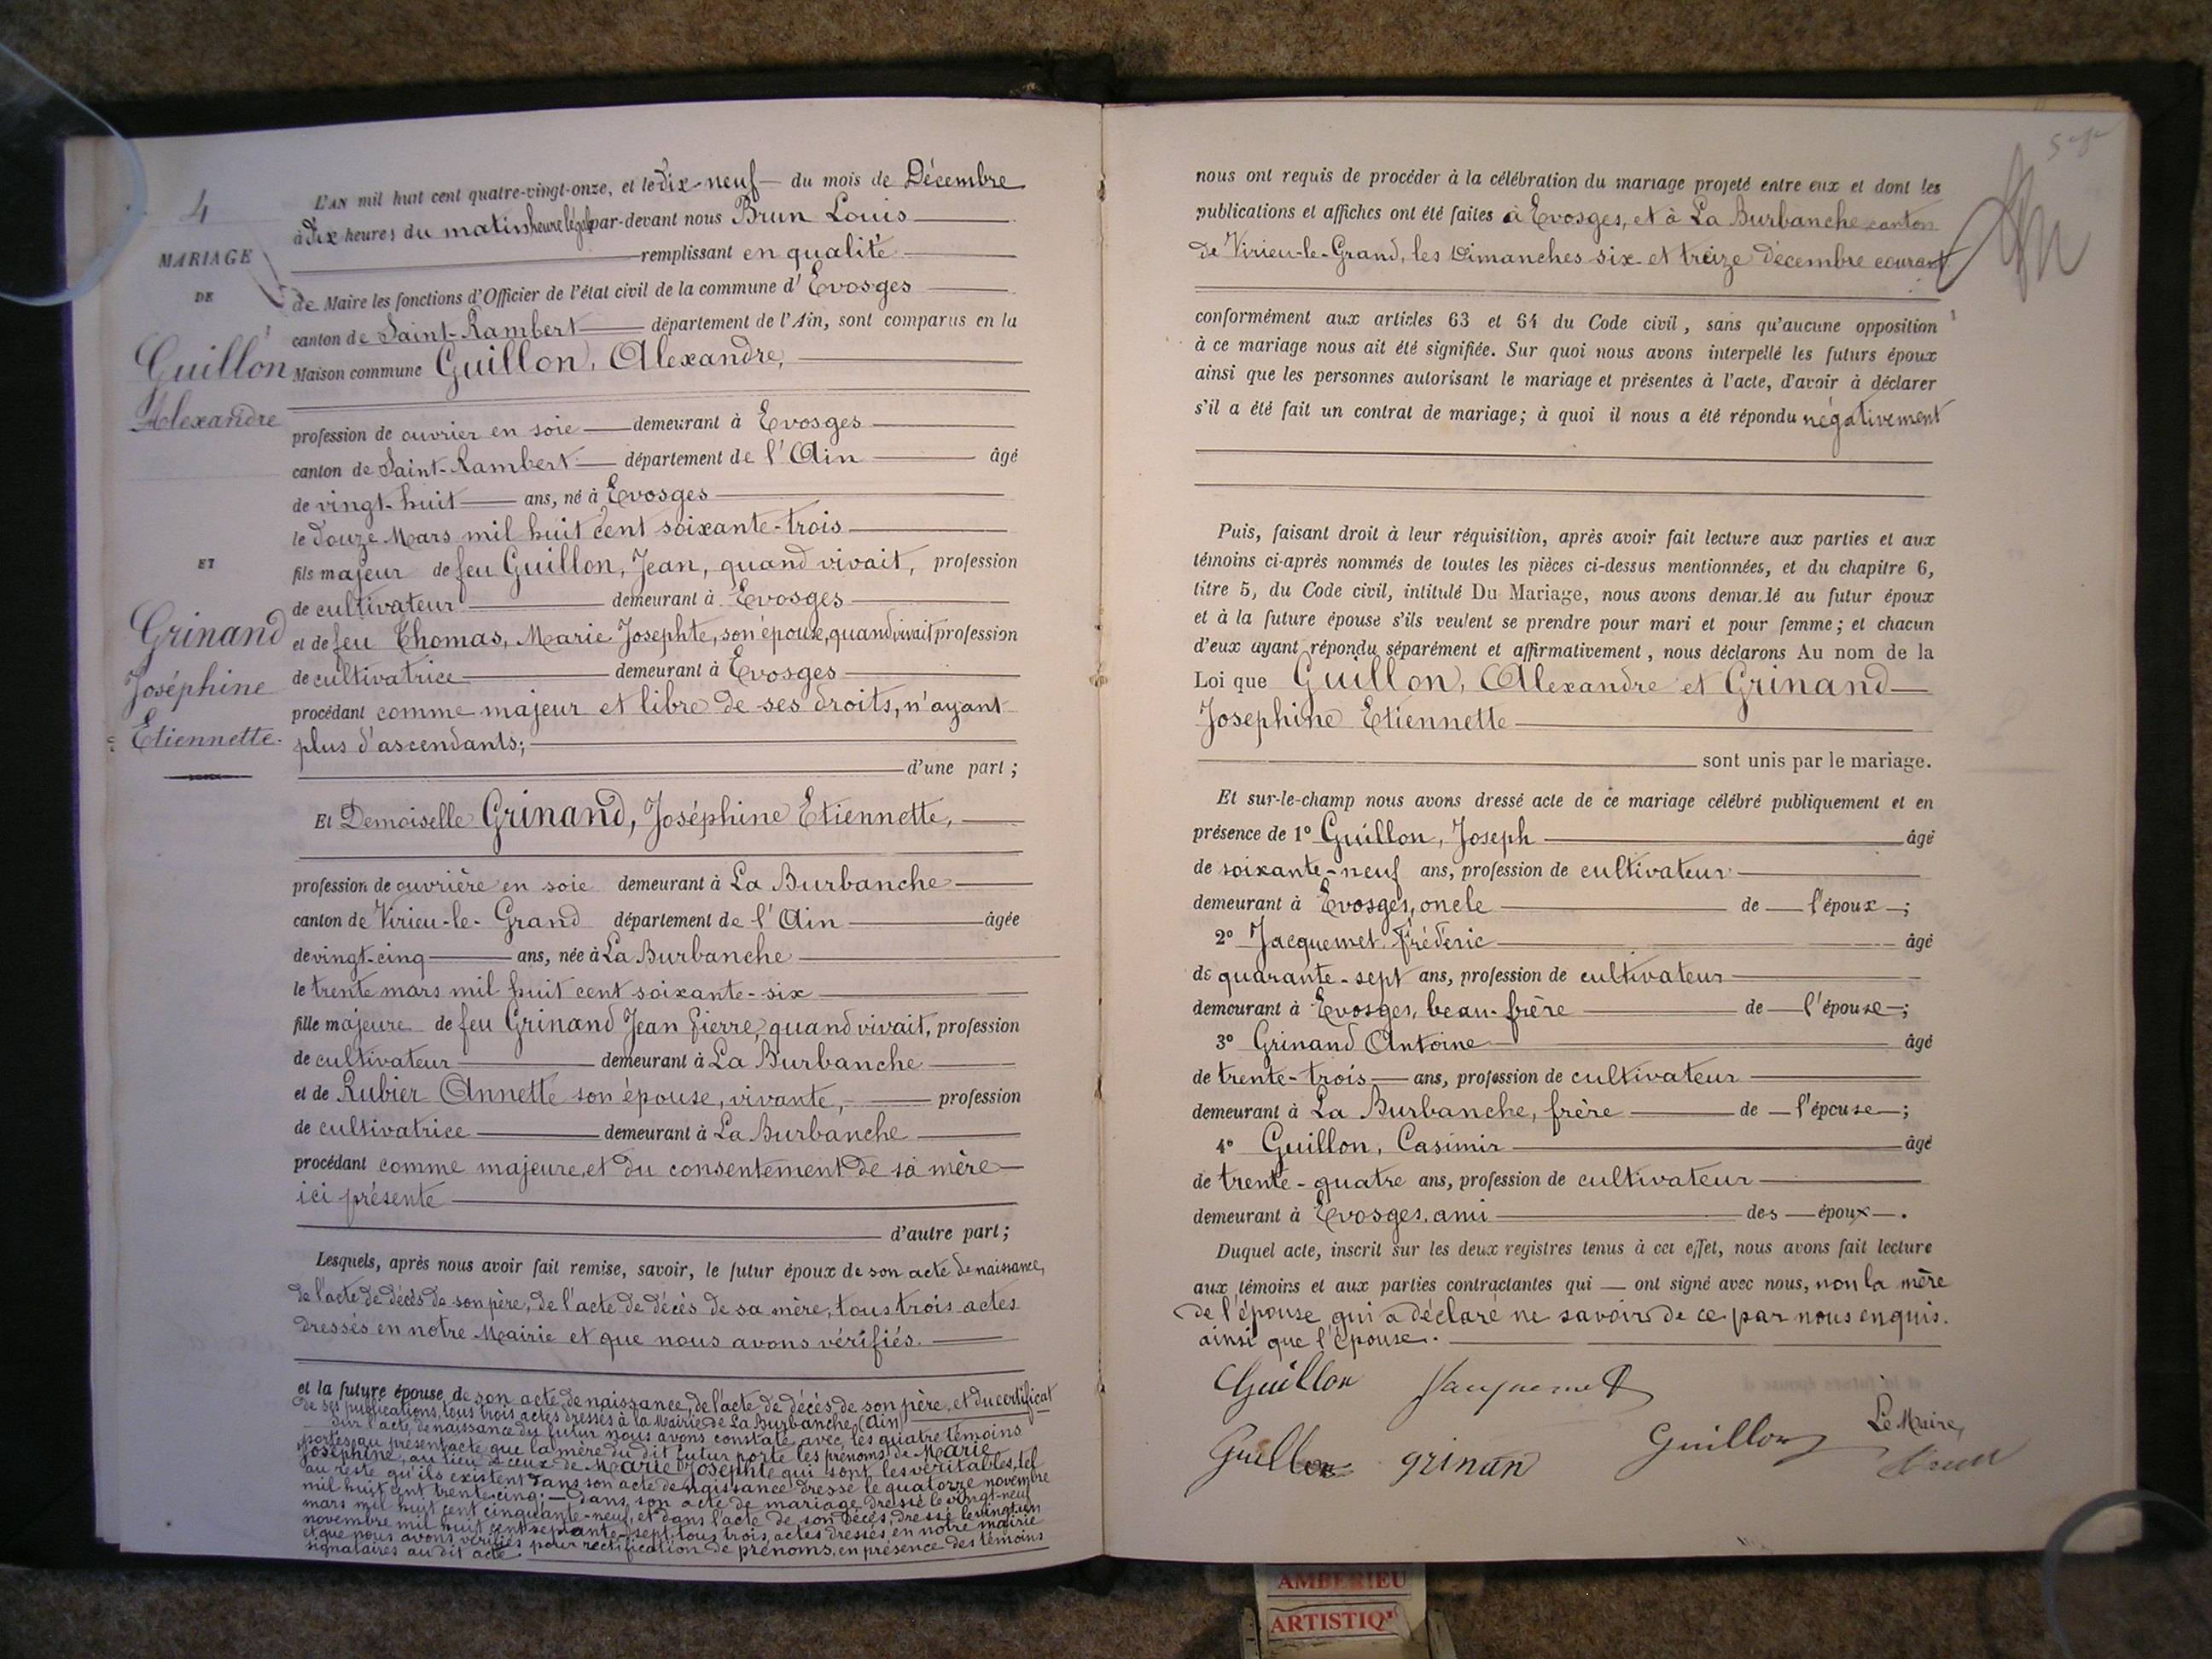 4
MARIAGE
DE
Guillon
Alexandre
ET
Grinand
Joséphine
Etiennette.
L'AN mil huit cent quatre-vingt-onze, et le dix-neuf du mois de Décembre
à dix heures du matin heure légale par-devant nous Brun Louis
remplissant en qualité
de Maire les fonctions d'Officier de l'état civil de la commune d'Evosges
canton de Saint-Rambert département de l'Ain, sont comparus en la
Maison commune Guillon, Alexandre,
profession de ouvrier en soie demeurant à Evosges
canton de Saint-Rambert département de l'Ain âgé
de vingt-huit ans, né à Evosges
le douze Mars mil huit cent soixante-trois
fils majeur de feu Guillon, Jean, quand vivait, profession
de cultivateur demeurant à Evosges
et de feu Thomas, Marie Josephte, son épouse, quand vivait profession
de cultivatrice demeurant à Evosges
procédant comme majeur et libre de ses droits, n'ayant
plus d'ascendants;
d'une part;
Et Demoiselle Grinand, Joséphine Etiennette,
profession de ouvrière en soie demeurant à La Burbanche
canton de Virieu-le-Grand département de l'Ain âgée
de vingt-cinq ans, née à La Burbanche
le trente mars mil huit cent soixante-six
fille majeure de feu Grinand Jean Pierre, quand vivait, profession
de cultivateur demeurant à La Burbanche
et de Rubier Annette son épouse, vivante, profession
de cultivatrice demeurant à La Burbanche
procédant comme majeure, et du consentement de sa mère
ici présente
d'autre part;
Lesquels, après nous avoir fait remise, savoir, le futur époux de son acte de naissance,
de l'acte de décès de son père, de l'acte de décès de sa mère, tous trois actes
dressés en notre Mairie et que nous avons vérifiés.
et la future épouse de son acte de naissance, de l'acte de décès de son père, et du certificat
de ses publications, tous trois actes dressés à la Mairie de La Burbanche (Ain)
Sur l'acte de naissance du futur nous avons constaté avec les quatre témoins
portés au présent acte que la mère du dit futur porte les prénoms de Marie
Joséphine, au lieu de ceux de Marie Josephte qui sont les véritables, tel
au reste qu'ils existent dans son acte de naissance dressé le quatorze novembre
mil huit cent trente-cinq; dans son acte de mariage dressé le vingt-neuf
mars mil huit cent cinquante-neuf, et dans l'acte de son décès, dressé le vingt un
novembre mil huit cent septante-sept, tous trois actes dressés en notre mairie
et que nous avons vérifiés pour rectification de prénoms, en présence des témoins
signataires au dit acte.
nous ont requis de procéder à la célébration du mariage projeté entre eux et dont les
publications et affiches ont été faites à Evosges, et à La Burbanche canton
de Virieu-le-Grand, les Dimanches six et treize décembre courant
conformément aux articles 63 et 64 du Code civil, sans qu'aucune opposition
à ce mariage nous ait été signifiée. Sur quoi nous avons interpellé les futurs époux
ainsi que les personnes autorisant le mariage et présentes à l'acte, d'avoir à déclarer
s'il a été fait un contrat de mariage; à quoi il nous a été répondu négativement
Puis, faisant droit à leur réquisition, après avoir fait lecture aux parties et aux
témoins ci-après nommés de toutes les pièces ci-dessus mentionnées, et du chapitre 6,
titre 5, du Code civil, intitulé Du Mariage, nous avons demandé au futur époux
et à la future épouse s'ils veulent se prendre pour mari et pour femme; et chacun
d'eux ayant répondu séparément et affirmativement, nous déclarons Au nom de la
Loi que Guillon, Alexandre et Grinand
Josephine Etiennette
sont unis par le mariage.
Et sur-le-champ nous avons dressé acte de ce mariage célébré publiquement et en
présence de 1º Guillon, Joseph âgé
de soixante-neuf ans, profession de cultivateur
demeurant à Evosges, oncle de l'époux;
2º Jacquemet Fréderic âgé
de quarante-sept ans, profession de cultivateur
demeurant à Evosges, beau-frère de l'épouse;
3º Grinand Antoine âgé
de trente-trois ans, profession de cultivateur
demeurant à La Burbanche, frère de l'épouse;
4º Guillon, Casimir âgé
de trente-quatre ans, profession de cultivateur
demeurant à Evosges, ami des époux.
Duquel acte, inscrit sur les deux registres tenus à cet effet, nous avons fait lecture
aux témoins et aux parties contractantes qui ont signé avec nous, non la mère
de l'épouse qui a déclaré ne savoir de ce par nous enquis.
ainsi que l'épouse.
Guillon Jacquemet
Guillon grinan Guillon Le Maire,
AMBERIEU
ARTISTIQ